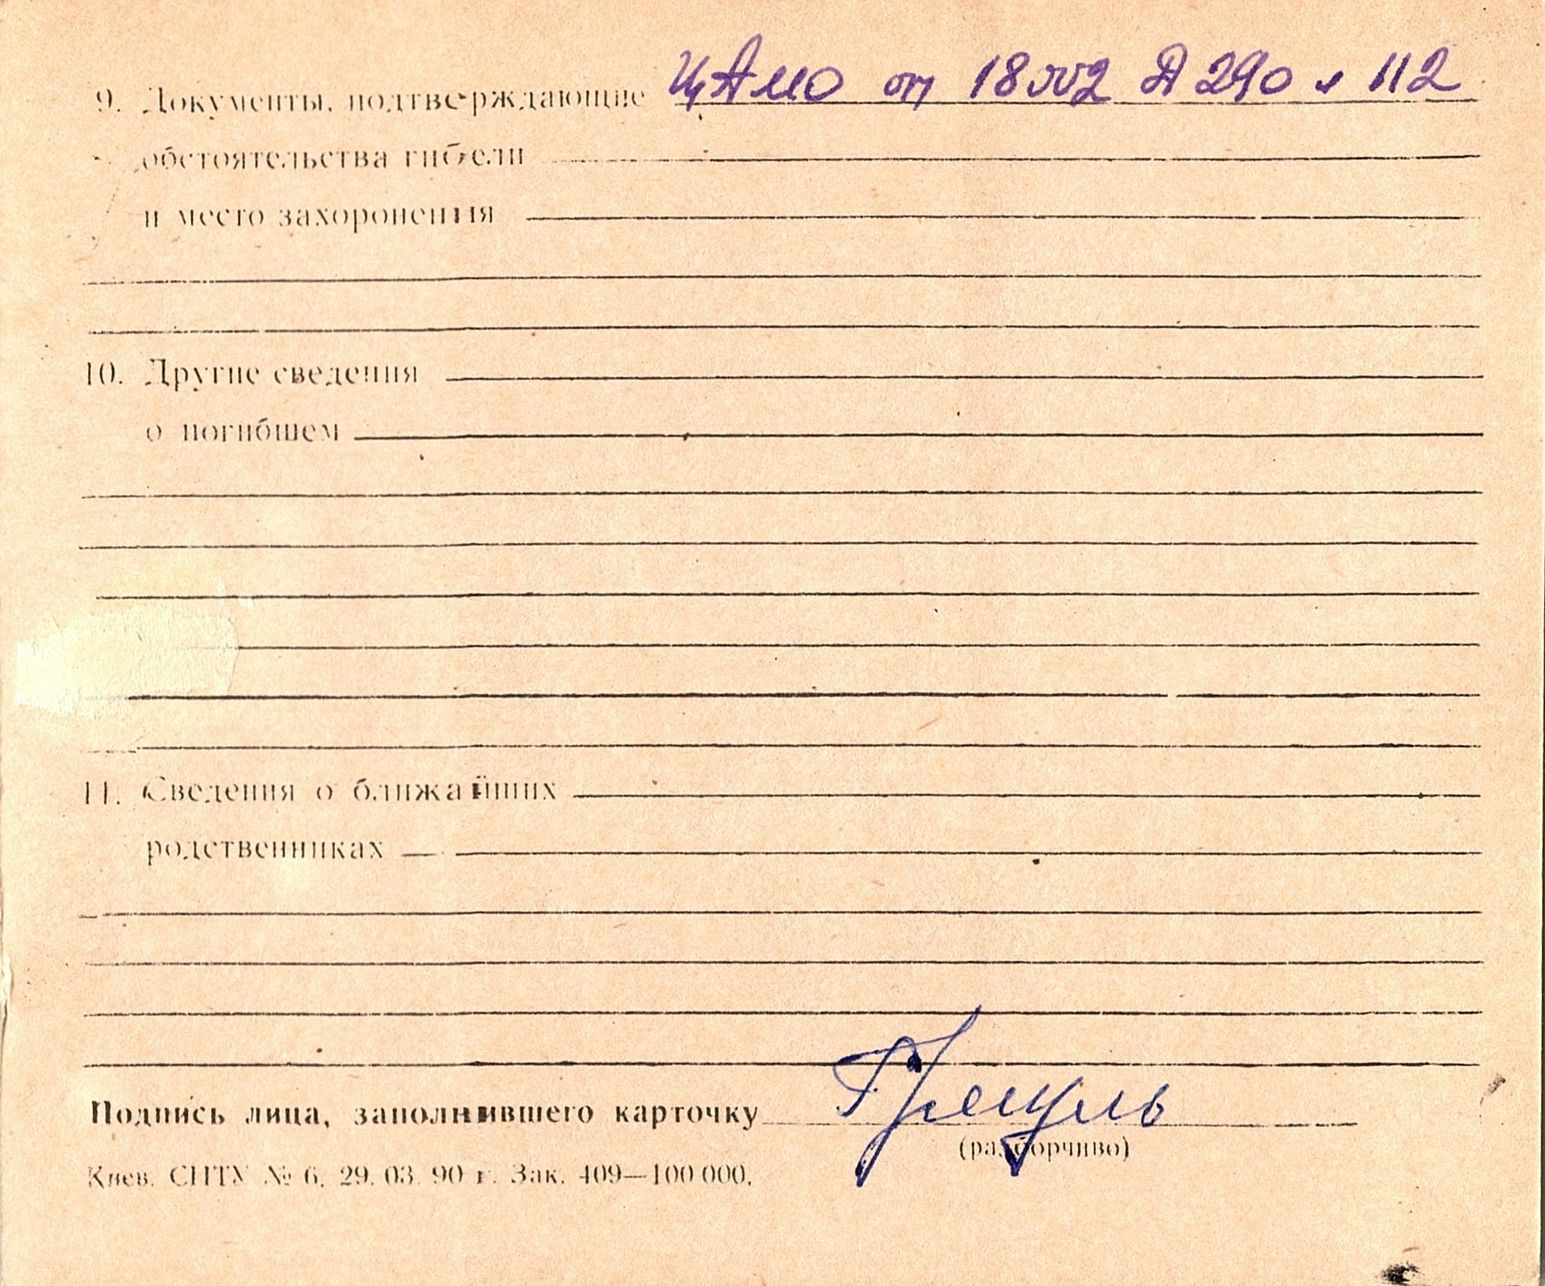 9. Документы, подтверждающие ЦАМО оп 18002 Д 290 л 112
обстоятельства гибели
и место захоронения
10. Другие сведения
о погибшем
11. Сведения о ближайших
родственниках
Подпись лица, заполнившего карточку
(разборчиво)
Киев. СПТУ № 6. 29. 03. 90 г. Зак. 409—100 000.